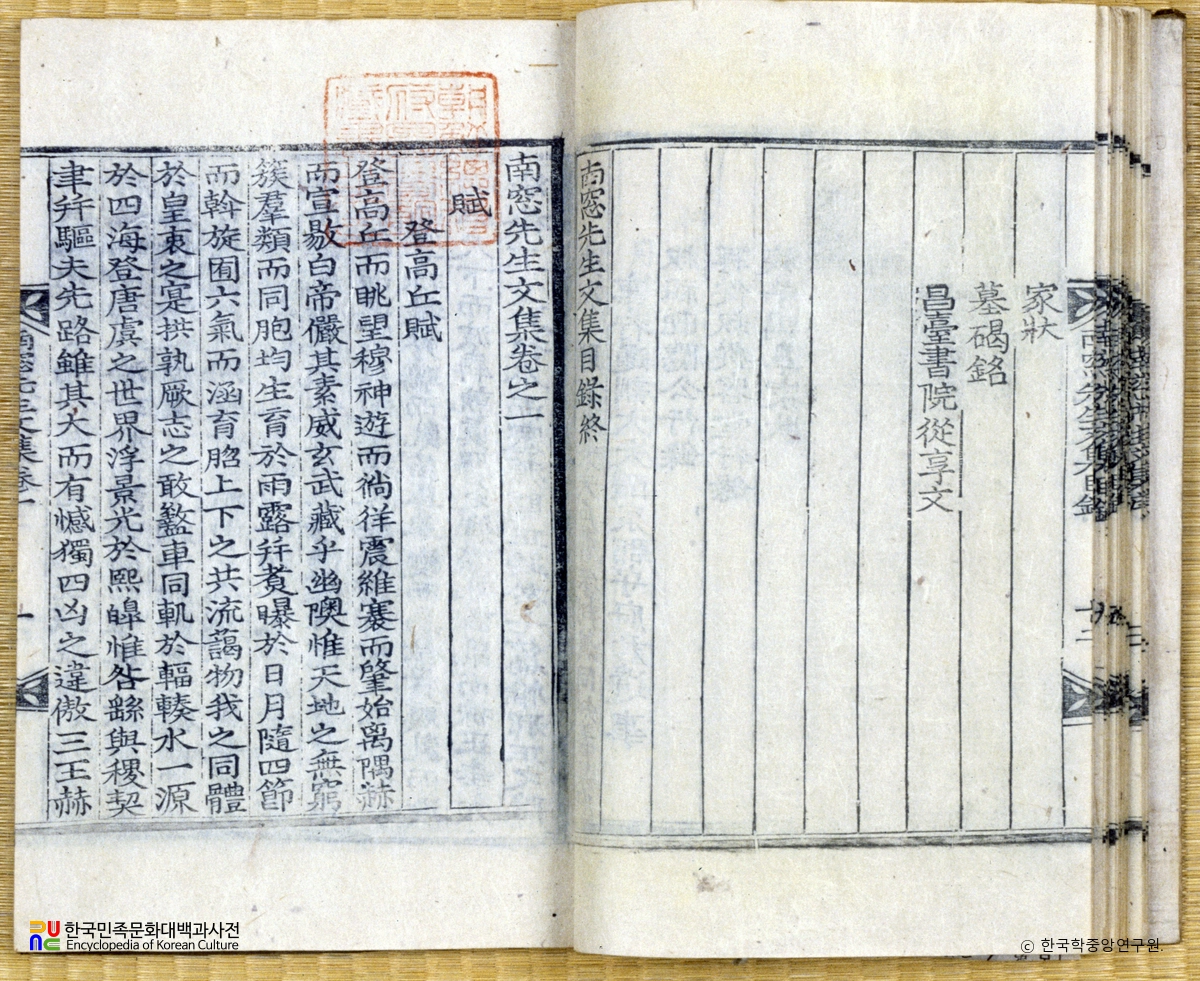 家狀
墓碣銘
昌臺書院從享文
南窓先生文集目錄終
南窓先生文集卷之一
賦
登高丘賦
登高丘而眺望穆神遊而徜徉震維褰而肇始离隅赫
而宣敭白帝儼其素威玄武藏乎幽隩惟天地之無窮
簇羣類而同胞均生育於雨露幷煮曝於日月隨四節
而斡旋囿六氣而涵育胎上下之共流藹物我之同體
於皇衷之寔拱孰厥志之敢盭車同軌於輻輳水一源
於四海登唐虞之世界浮景光於熙皥惟咎繇與稷契
聿幷驅夫先路雖其大而有憾獨四凶之違傲三王赫
南窓先生文集目錄
南窓先生文集卷一
一
한국민족문화대백과사전
Encyclopedia of Korean Culture
© 한국학중앙연구원.